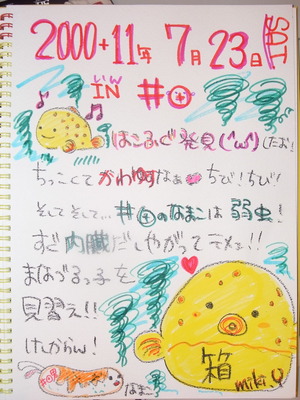 2000+11年 7月23日 SAT
いん
IN #⊕
はこふぐ発見(^ω^)(たお!
ちっこくてかわゆすなぁ♥ ちび!ちび!
そしてそして… #⊕のなまこは 弱虫!
すぐ内臓だしやがってテメェ!!
まなづるっ子を
見習え!!
けしからん!
箱
miki
なまこ